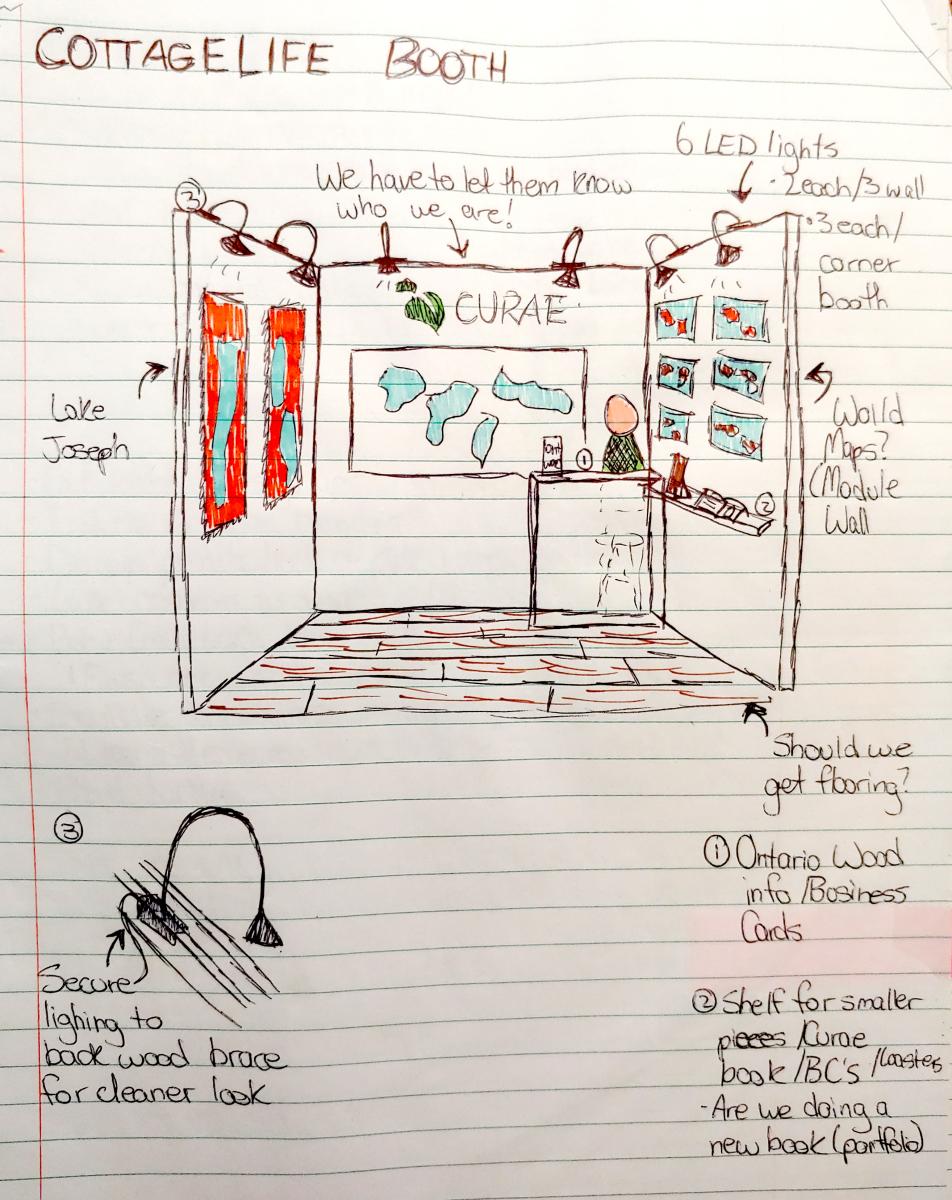 COTTAGELIFE BOOTH
6 LED lights
· 2each/3 wall
· 3 each/
corner
booth
We have to let them know
who we are!
3
CURAE
Lake
Joseph
World
Maps?
(Module
Wall
Ont
Wood
1
2
Should we
get flooring?
3
Secure
lighing to
back wood brace
for cleaner look
1 Ontario Wood
info /Business
Cards
2 Shelf for smaller
pieces /Curae
book /BC's /Coasters
- Are we doing a
new book (portfolio)